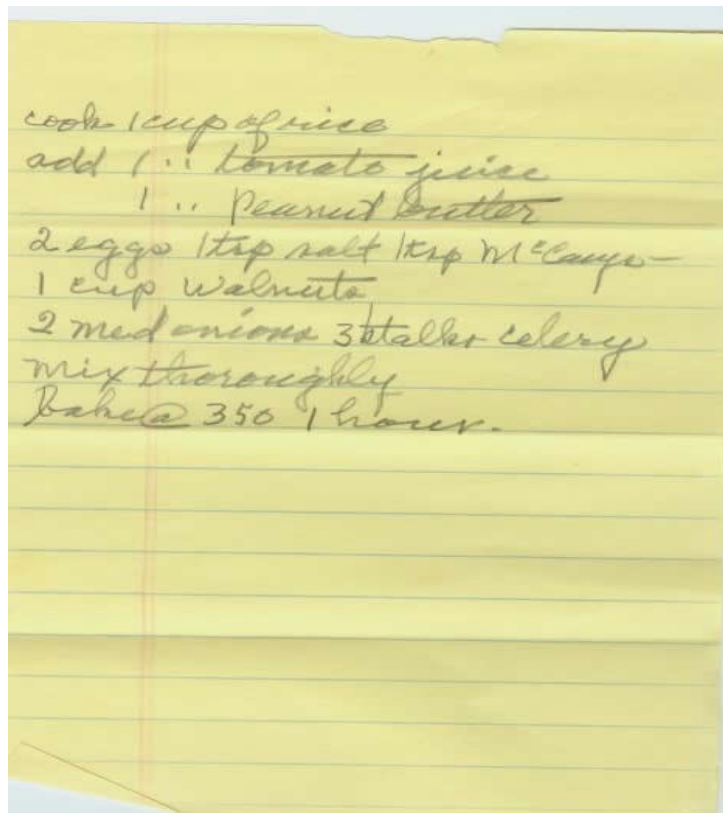 cook 1 cup of rice
add 1 " tomato juice
1 " Peanut butter
2 eggs 1 tsp salt 1 tsp McCays -
1 cup walnuts
2 med onions 3 stalks celery
mix thoroughly
Bake @ 350 1 hour.